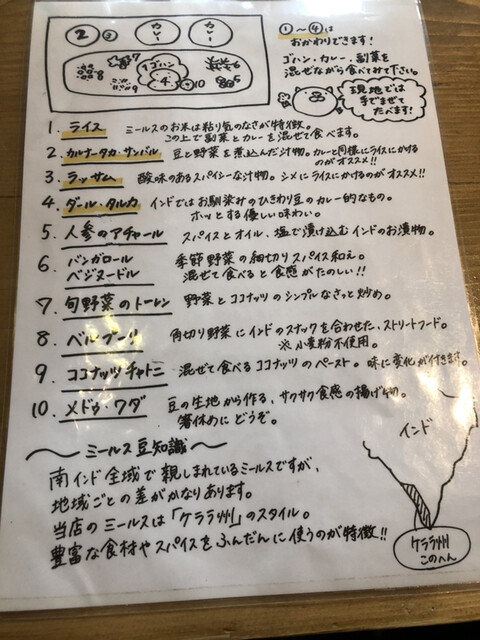 2 3 カレー カレー
ゴハン
1 4 5 6 7 8 9 10
①〜④は
おかわりできます!
ゴハン・カレー、副菜を
混ぜながら食べてみて下さい。
現地では
手でまぜて
たべます!
1. ライス ミールスのお米は粘り気のなさが特徴。
この上で副菜とカレーを混ぜて食べます。
2. カルナータカ・サンバル 豆と野菜を煮込んだ汁物。カレーと同様にライスにかける
のがオススメ!!
3. ラッサム 酸味のあるスパイシーな汁物。シメにライスにかけるのがオススメ!!
4. ダール・タルカ インドではお馴染みのひきわり豆のカレー的なもの。
ホッとする優しい味わい。
5. 人参のアチャール スパイスとオイル、塩で漬け込むインドのお漬物。
6 バンガロール
ベジヌードル 季節野菜の細切りスパイス和え。
混ぜて食べると食感がたのしい!!
7 旬野菜のトーレン 野菜とココナッツのシンプルなさっと炒め。
8 ベルプーリ 角切り野菜にインドのスナックを合わせた、ストリートフード。
※小麦粉不使用。
9 ココナッツチャトニ 混ぜて食べるココナッツのペースト。味に変化が付きます。
10. メドゥ・ワダ 豆の生地から作る、サクサク食感の揚げもの。
箸休めにどうぞ。
〜ミールス豆知識〜
南インド全域で親しまれているミールスですが、
地域ごとの差がかなりあります。
当店のミールスは「ケララ州」のスタイル。
豊富な食材やスパイスをふんだんに使うのが特徴!!
インド
ケララ州
このへん